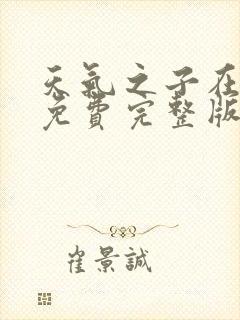 天氣之子在
免費完整版
崔景誠